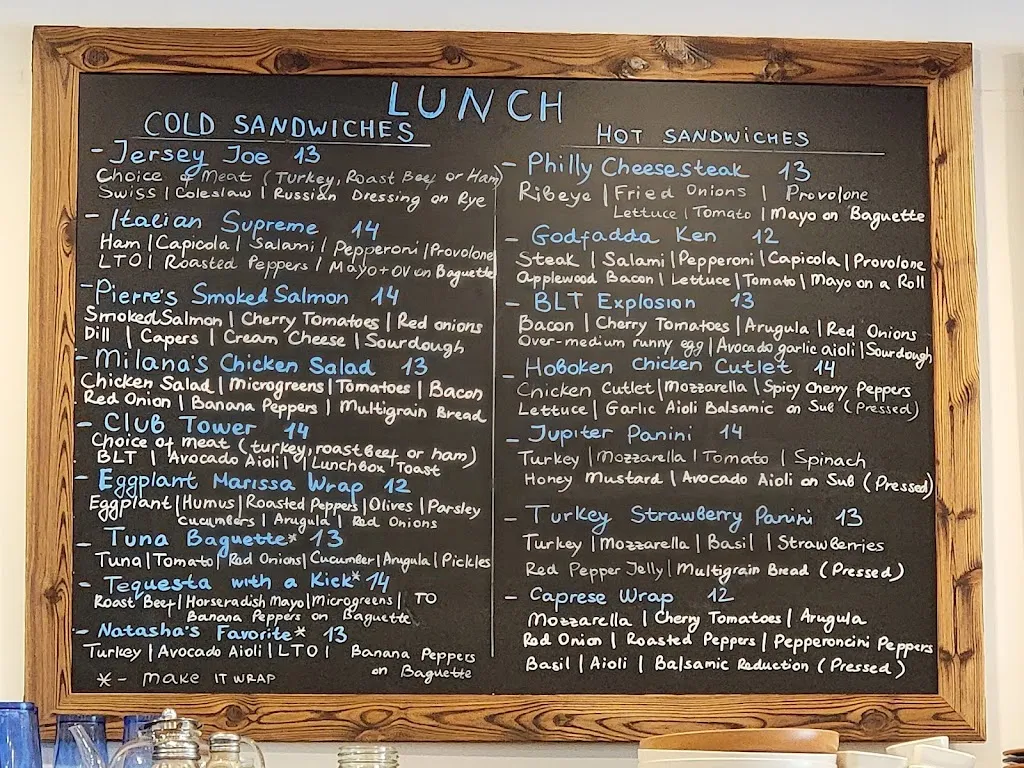 LUNCH
COLD SANDWICHES
- Jersey Joe 13
Choice of Meat (Turkey, Roast Beef or Ham)
Swiss | Coleslaw | Russian Dressing on Rye
- Italian Supreme 14
Ham | Capicola | Salami | Pepperoni | Provolone
LTO | Roasted Peppers | Mayo + OV on Baguette
- Pierre's Smoked Salmon 14
Smoked Salmon | Cherry Tomatoes | Red onions
Dill | Capers | Cream Cheese | Sourdough
- Milana's Chicken Salad 13
Chicken Salad | Microgreens | Tomatoes | Bacon
Red Onion | Banana Peppers | Multigrain Bread
- Club Tower 14
Choice of meat (turkey, roast beef or ham)
BLT | Avocado Aioli | Lunchbox Toast
- Eggplant Marissa Wrap 12
Eggplant | Humus | Roasted Peppers | Olives | Parsley
Cucumbers | Arugula | Red Onions
- Tuna Baguette* 13
Tuna | Tomato | Red Onions | Cucumber | Arugula | Pickles
- Tequesta with a Kick* 14
Roast Beef | Horseradish Mayo | Microgreens | TO
Banana Peppers on Baguette
- Natasha's Favorite* 13
Turkey | Avocado Aioli | LTO | Banana Peppers
on Baguette
* - make it wrap
HOT SANDWICHES
- Philly Cheesesteak 13
Ribeye | Fried Onions | Provolone
Lettuce | Tomato | Mayo on Baguette
- Godfadda Ken 12
Steak | Salami | Pepperoni | Capicola | Provolone
Applewood Bacon | Lettuce | Tomato | Mayo on a Roll
- BLT Explosion 13
Bacon | Cherry Tomatoes | Arugula | Red Onions
Over-medium runny egg | Avocado garlic aioli | Sourdough
- Hoboken Chicken Cutlet 14
Chicken Cutlet | Mozzarella | Spicy Cherry Peppers
Lettuce | Garlic Aioli Balsamic on Sub (Pressed)
- Jupiter Panini 14
Turkey | Mozzarella | Tomato | Spinach
Honey Mustard | Avocado Aioli on Sub (Pressed)
- Turkey Strawberry Panini 13
Turkey | Mozzarella | Basil | Strawberries
Red Pepper Jelly | Multigrain Bread (Pressed)
- Caprese Wrap 12
Mozzarella | Cherry Tomatoes | Arugula
Red Onion | Roasted Peppers | Pepperoncini Peppers
Basil | Aioli | Balsamic Reduction (Pressed)